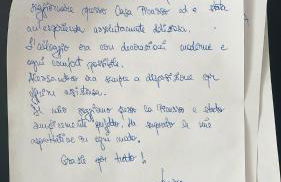 soggiornare presso Casa Picasso ed è stata
un'esperienza assolutamente deliziosa.
L'alloggio era con decorazioni moderne e
ogni comfort possibile.
Alessandro era sempre a disposizione per
assistenza.
Il mio soggiorno presso la Picasso è stato
semplicemente perfetto. Ha superato le mie
aspettative in ogni modo.
Grazie per tutto!